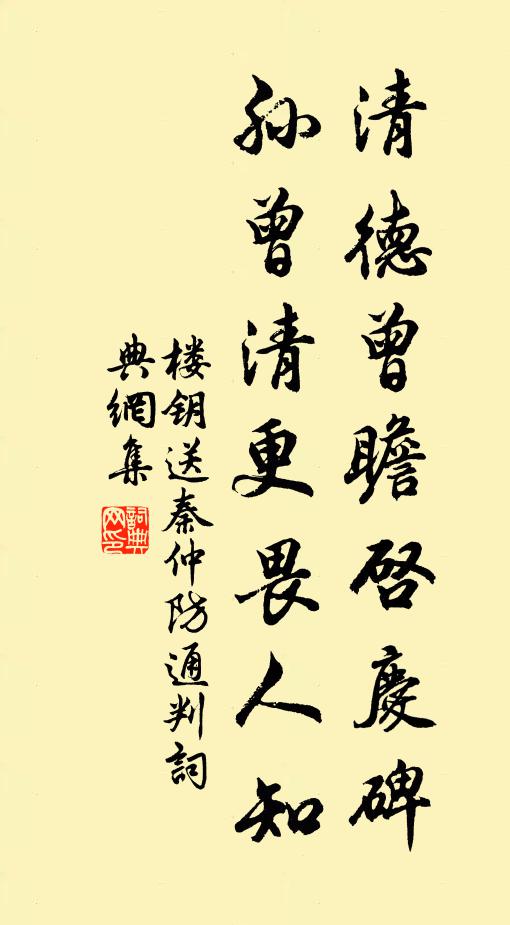 清德曾瞻启慶碑
孙曾清更畏人知
楼钥送秦仲防通判詞
典網集
詞典网印